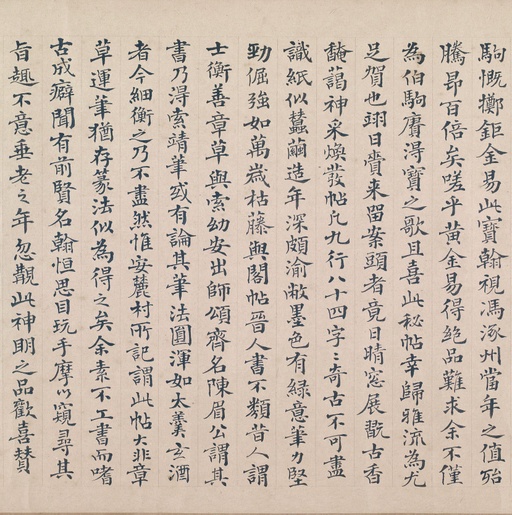 駒慨擲鉅金易此寶翰視馮涿州當年之值殆
騰昂百倍矣嗟乎黃金易得絕品難求余不僅
為伯駒賡得寶之歌且喜此秘帖幸歸雅流為尤
足賀也翊日賫来留案頭者竟日晴窓展翫古香
馣藹神采煥發帖凡九行八十四字〻奇古不可盡
識紙似蠶繭造年深頗渝敝墨色有綠意筆力堅
勁倔強如萬歲枯藤與閣帖晉人書不類昔人謂
士衡善章草與索幼安出師頌齊名陳眉公謂其
書乃淂索靖筆或有論其筆法圓渾如太羹玄酒
者今細衡之乃不盡然惟安麓村所記謂此帖大非章
草運筆猶存篆法似為得之矣余素不工書而嗜
古成癖聞有前賢名翰恒思目玩手摩以窺尋其
旨趣不意垂老之年忽覩此神明之品歡喜贊